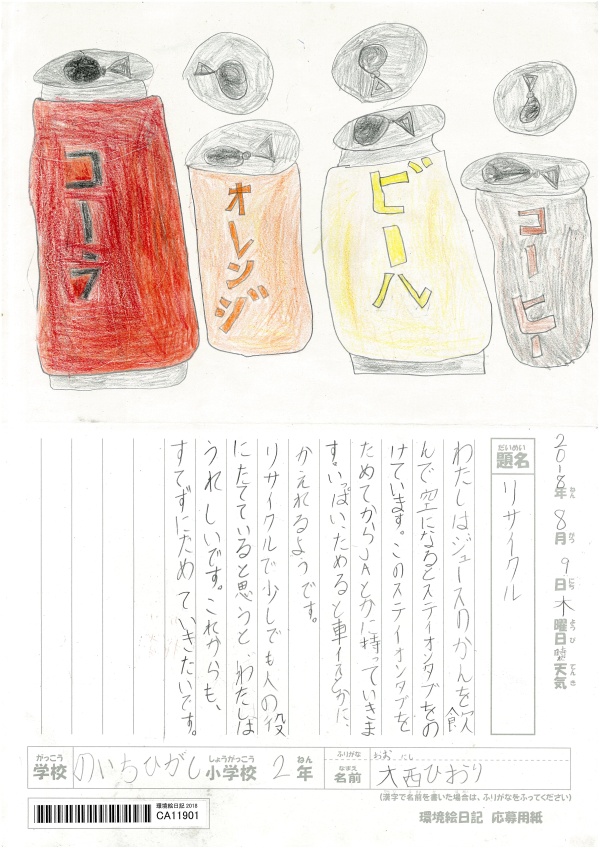 コーラ
オレンジ
ビール
コーヒー
2018年 8月 9日 木曜日 天気
ねん がつ にち ようび てんき
だいめい
題名
リサイクル
わたしはジュースのかんを飲
んで空になるとステイオンタブをの
けています。このステイオンタブを
ためてからJAとかに持っていきま
す。いっぱいためると車イスとかに、
かえれるようです。
リサイクルで少しでも人の役
にたてていると思うと、わたしは
うれしいです。これからも、
すてずにためていきたいです。
がっこう しょうがっこう ねん
学校 のいちひがし小学校 2年
ふりがな おお にし
なまえ
名前 大西ひおり
(漢字で名前を書いた場合は、ふりがなをふってください)
環境絵日記 2018
CA11901
環境絵日記 応募用紙